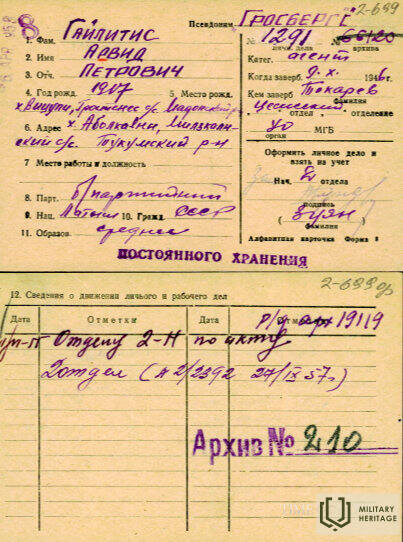 8
Псевдоним ГРОСБЕРГС 2-699
1. Фам. ГАЙЛИТИС
№ 1291 66120
личн. дела архива
2. Имя АРВИД
Катег. агент
3. Отч. ПЕТРОВИЧ
Когда заверб. 9.X. 1946 г.
4. Год рожд. 1907 5. Место рожд.
Кем заверб. Токарев
фамилия
отдел, отделение
6. Адрес х. Аболкални,
с/с. Тукумский р-н
УО МГБ
орган
Оформить личное дело и
взять на учет
7 Место работы и должность
Нач. 2 отдела
8. Парт. б/партийный
подпись
9. Нац. Латыш 10. Гражд. СССР
(Зуян)
(фамилия)
11. Образов. среднее
Алфавитная карточка Форма
ПОСТОЯННОГО ХРАНЕНИЯ
2-699 об
12. Сведения о движении личного и рабочего дел
Дата Отметки Дата Отметки
арх 19119
Отделу 2-Н по акту
2 отдел (н 2/2392 27/IX 57г.)
Архив № 210
MILITARY
HERITAGE